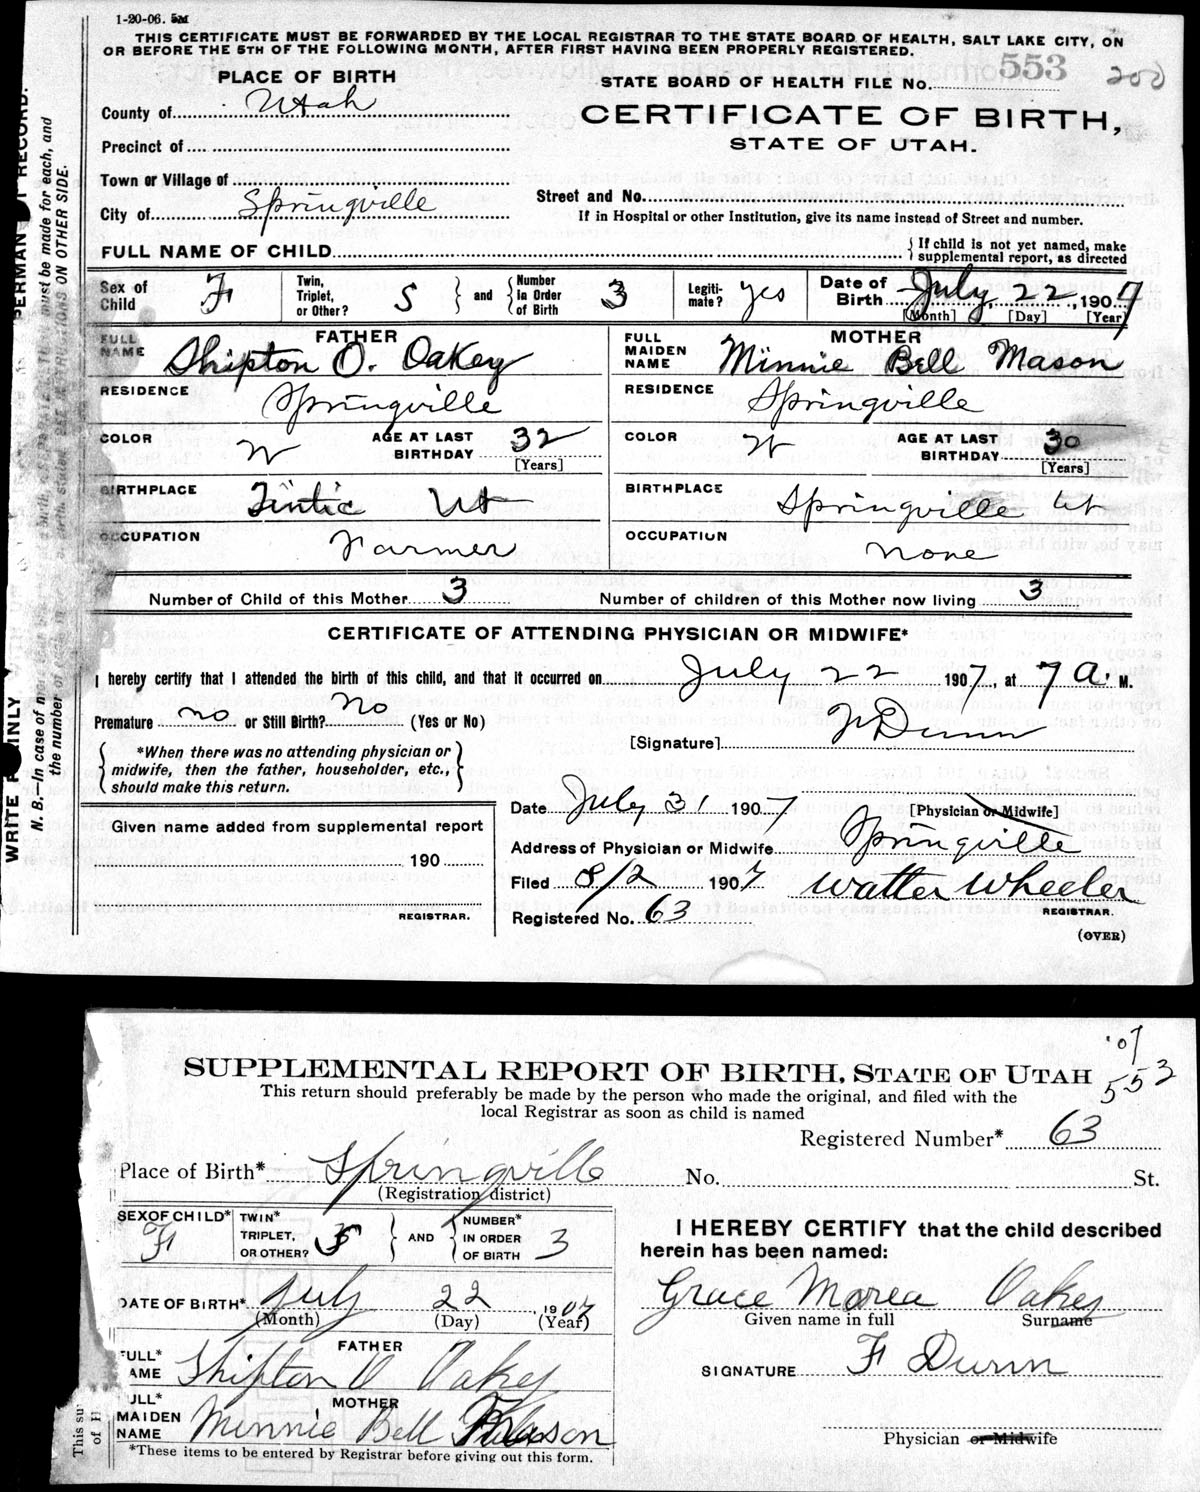 1-20-06. 5M
THIS CERTIFICATE MUST BE FORWARDED BY THE LOCAL REGISTRAR TO THE STATE BOARD OF HEALTH, SALT LAKE CITY, ON
OR BEFORE THE 5TH OF THE FOLLOWING MONTH, AFTER FIRST HAVING BEEN PROPERLY REGISTERED.
PLACE OF BIRTH
STATE BOARD OF HEALTH FILE No. 553 200
County of Utah
CERTIFICATE OF BIRTH,
STATE OF UTAH.
Precinct of
Town or Village of
Street and No.
City of Springville
If in Hospital or other Institution, give its name instead of Street and number.
FULL NAME OF CHILD
{ If child is not yet named, make supplemental report, as directed
Sex of Child F Twin, Triplet, or Other? S } and { Number in Order of Birth 3 Legiti-mate? yes Date of Birth July 22, 1907
[Month] [Day] [Year]
FATHER MOTHER
FULL NAME Shipton O. Oakey FULL MAIDEN NAME Minnie Bell Mason
RESIDENCE Springville RESIDENCE Springville
COLOR W AGE AT LAST BIRTHDAY 32 [Years] COLOR W AGE AT LAST BIRTHDAY 30 [Years]
BIRTHPLACE Tintic Ut BIRTHPLACE Springville Ut
OCCUPATION Farmer OCCUPATION none
Number of Child of this Mother 3 Number of children of this Mother now living 3
CERTIFICATE OF ATTENDING PHYSICIAN OR MIDWIFE*
I hereby certify that I attended the birth of this child, and that it occurred on July 22 1907, at 7 A. M.
Premature no or Still Birth? No (Yes or No)
[Signature] F Dunn
{ *When there was no attending physician or
midwife, then the father, householder, etc.,
should make this return. }
Date July 31 1907 [Physician or Midwife]
Given name added from supplemental report
Address of Physician or Midwife Springville
190
Filed 8/2 1907 Walter Wheeler
REGISTRAR. Registered No. 63 REGISTRAR.
(OVER)
WRITE PLAINLY
N. B.—In case of
the number of
must be made for each, and
ON OTHER SIDE.
'07
553
SUPPLEMENTAL REPORT OF BIRTH, STATE OF UTAH
This return should preferably be made by the person who made the original, and filed with the
local Registrar as soon as child is named
Registered Number* 63
Place of Birth* Springville No. St.
(Registration district)
SEX OF CHILD* F TWIN* TRIPLET, OR OTHER? S } AND { NUMBER* IN ORDER OF BIRTH 3
I HEREBY CERTIFY that the child described
herein has been named:
DATE OF BIRTH* July 22, 1907
(Month) (Day) (Year)
Grace Morea Oakey
Given name in full Surname
FATHER
FULL* NAME Shipton O Oakey
SIGNATURE F Dunn
MOTHER
FULL* MAIDEN NAME Minnie Bell Mason
Physician or Midwife
*These items to be entered by Registrar before giving out this form.
This su
of